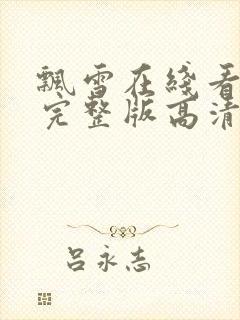 飘雪在线看
完整版高清
吕永志